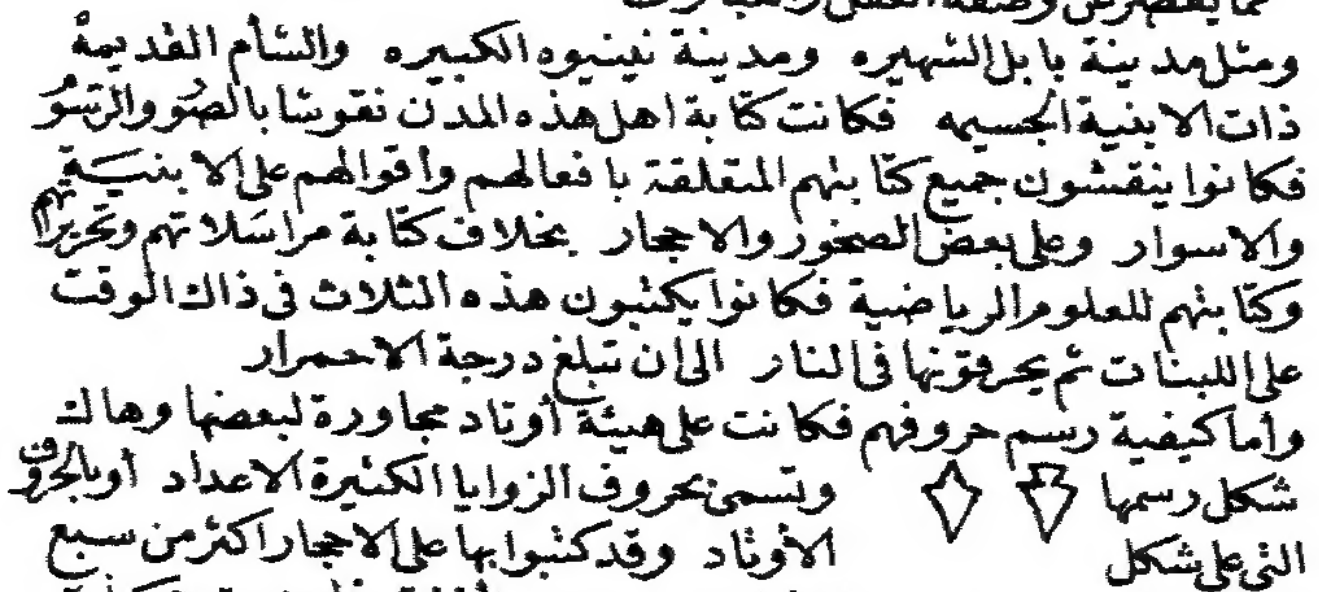 ومثل مدينة بابل الشهيره ومدينة نينيوه الكبيره والشأم القديمة
ذات الابنية الجسيمه فكانت كتابة اهل هذه المدن نقوشا بالصور والرسو
فكانوا ينقشون جميع كتابتهم المتعلقة بافعالهم وأقوالهم على الابنية
والاسوار وعلى بعض الصخور والاحجار بخلاف كتابة مراسلاتهم وتحريراتهم
وكتابتهم للعلوم الرياضية فكانوا يكتبون هذه الثلاث فى ذاك الوقت
على اللبنات ثم يحرقونها فى النار الى ان تبلغ درجة الاحمرار
وأما كيفية رسم حروفهم فكانت على هيئة أوتاد مجاورة لبعضها وهاك
شكل رسمها وتسمى بحروف الزوايا الكثيرة الاعداد أو بالحروف
التى على شكل الأوتاد وقد كتبوا بها على الاحجار اكثر من سبع